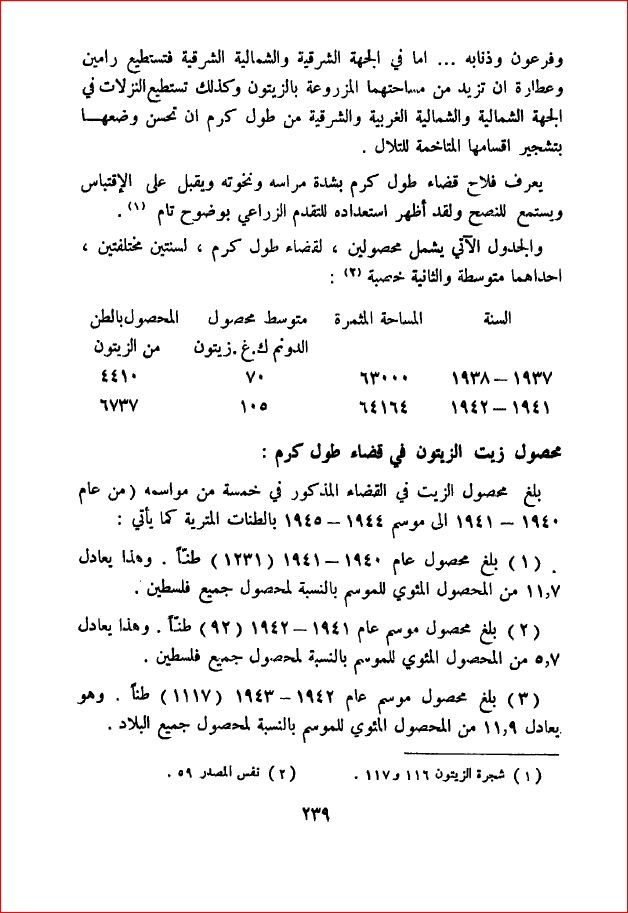 وفرعون وذنابه ... اما في الجهة الشرقية والشمالية الشرقية فتستطيع رامين
وعطارة ان تزيد من مساحتهما المزروعة بالزيتون وكذلك تستطيع النزلات في
الجهة الشمالية والشمالية الغربية والشرقية من طول كرم ان تحسن وضعهـا
بتشجير اقسامها المتاخمة للتلال .
يعرف فلاح قضاء طول كرم بشدة مراسه ونخوته ويقبل على الإقتباس
ويستمع للنصح ولقد أظهر استعداده للتقدم الزراعي بوضوح تام (١) .
والجدول الآتي يشمل محصولين ، لقضاء طول كرم ، لسنتين مختلفتين ،
احداهما متوسطة والثانية خصبة (٢) :
السنة المساحة المثمرة متوسط محصول المحصول بالطن
الدونم ك.غ.زيتون من الزيتون
١٩٣٧ – ١٩٣٨ ٦٣٠٠٠ ٧٠ ٤٤١٠
١٩٤١ – ١٩٤٢ ٦٤١٦٤ ١٠٥ ٦٧٣٧
محصول زيت الزيتون في قضاء طول كرم :
بلغ محصول الزيت في القضاء المذكور في خمسة من مواسمه (من عام
١٩٤٠ – ١٩٤١ الى موسم ١٩٤٤ – ١٩٤٥ بالطنات المترية كما يأتي :
(١) بلغ محصول عام ١٩٤٠ – ١٩٤١ (١٢٣١) طنـّاً . وهذا يعادل
١١,٧ من المحصول المئوي للموسم بالنسبة لمحصول جميع فلسطين .
(٢) بلغ محصول موسم عام ١٩٤١ – ١٩٤٢ (٩٢) طنـّاً . وهذا يعادل
٥,٧ من المحصول المئوي للموسم بالنسبة لمحصول جميع فلسطين .
(٣) بلغ محصول موسم عام ١٩٤٢ – ١٩٤٣ (١١١٧) طناً . وهو
يعادل ١١,٩ من المحصول المئوي للموسم بالنسبة لمحصول جميع البلاد .
(١) شجرة الزيتون ١١٦ و١١٧ . (٢) نفس المصدر ٥٩ .
٢٣٩